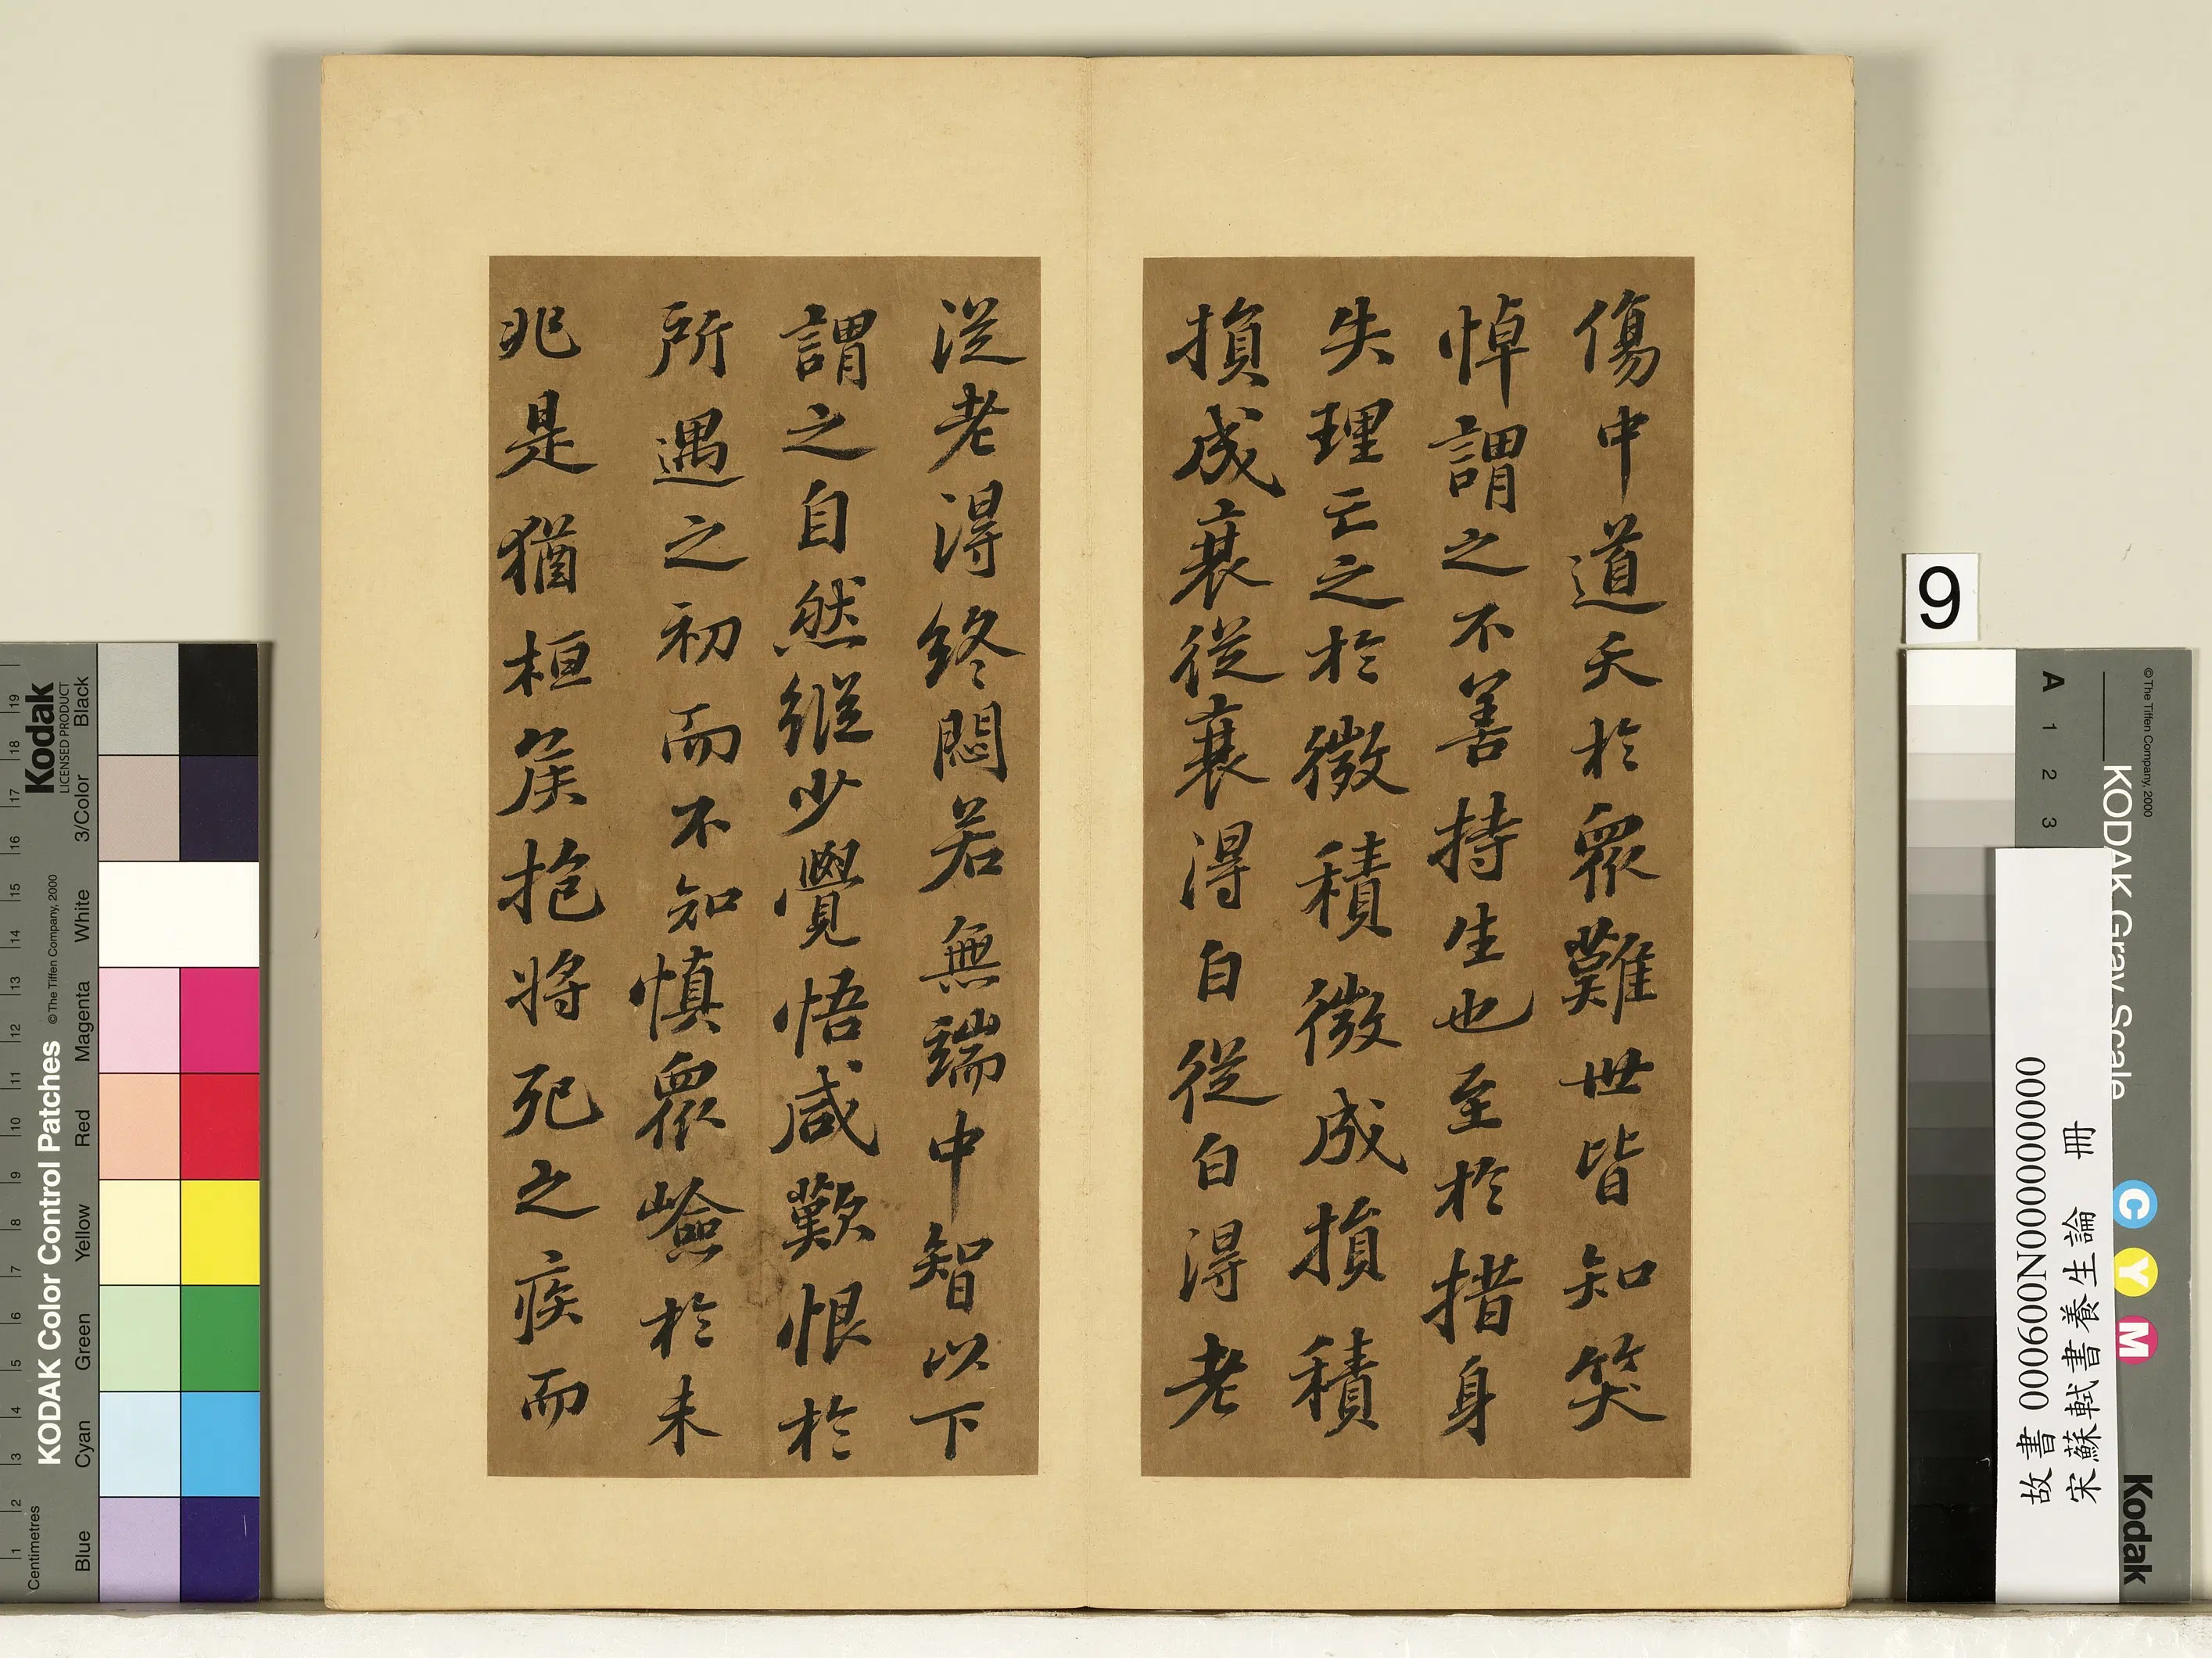 傷中道夭於眾難世皆知笑
悼謂之不善持生也至於措身
失理亡之於微積微成損積
損成衰從衰得白從白得老
從老得終悶若無端中智以下
謂之自然縱少覺悟咸歎恨於
所遇之初而不知慎眾嶮於未
兆是猶桓侯抱將死之疾而
9
KODAK Gray Scale
© The Tiffen Company, 2000
A 1 2 3
C Y M
Kodak
故書 000600N000000000
宋蘇軾書養生論 冊
KODAK Color Control Patches
© The Tiffen Company, 2000
Kodak
LICENSED PRODUCT
Centimetres
1 2 3 4 5 6 7 8 9 10 11 12 13 14 15 16 17 18 19
Blue Cyan Green Yellow Red Magenta White 3/Color Black